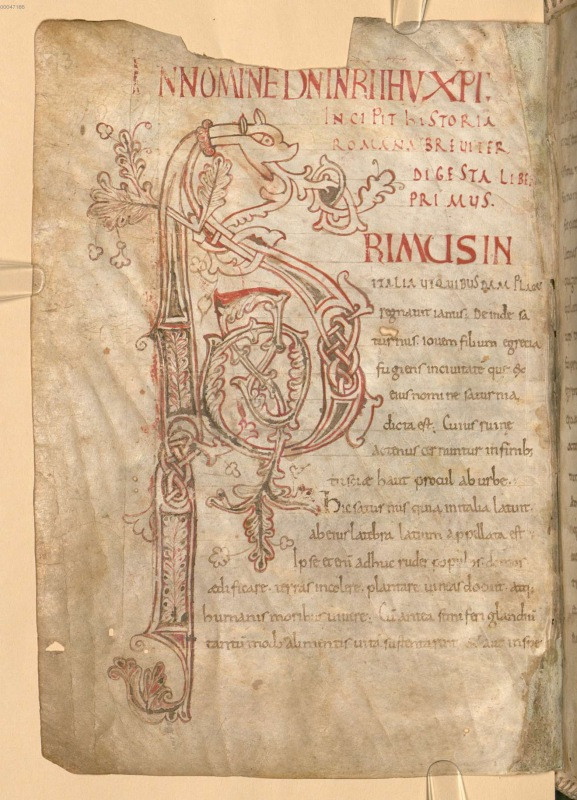 00047186
IN NOMINE DNI NRI IHU XPI:
INCIPIT hISTORIA
ROMANA BREUITER
DIGESTA LIBER
PRIMUS.
PRIMUS IN
ITALIA UT QUIBUSDAM PLACET
regnauit ianus. Deinde sa
turnus. iouem filium e grecia
fugiens in ciuitate que
eius nomine saturnia
dicta est. Cuius ruine
actenus cernuntur in finib;
tusciae haut procul ab urbe.
hic saturnus quia in italia latuit.
ab eius latebra latium appellata est.
Ipse etenim adhuc rudes populos domos
ædificare. terras incolere. plantare uineas docuit. atq;
humanis moribus uiuere. Cū antea semiferi glandiū
tantūmodo alimentis uita sustentarent